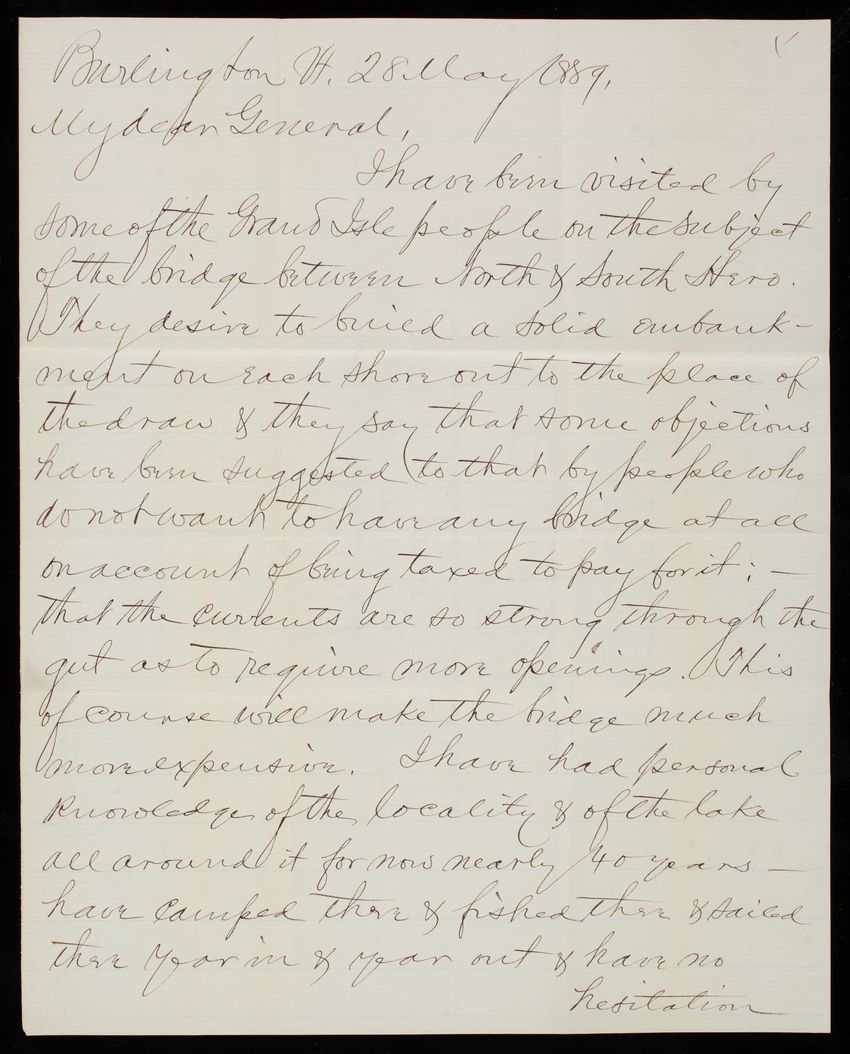 Burlington Vt. 28 May 1889,
My dear General,
I have been visited by
some of the Grand Isle people on the subject
of the bridge between North & South Hero.
They desire to build a solid embank-
ment on each shore out to the place of
the draw & they say that some objections
have been suggested to that by people who
do not want to have any bridge at all
on account of being taxed to pay for it; —
that the currents are so strong through the
gut as to require more openings. This
of course will make the bridge much
more expensive. I have had personal
knowledge of the locality & of the lake
all around it for now nearly 40 years —
have camped there & fished there & sailed
there year in & year out & have no
hesitation